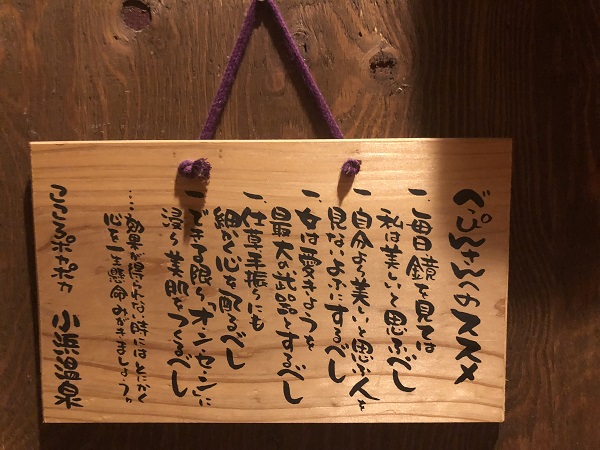 べっぴんさんのススメ
一、毎日鏡を見ては
私は美しいと思ふべし
一、自分より美しいと思ふ人を
見ないようにするべし
一、女は愛きょうを
最大の武器とするべし
一、仕草身振りにも
細く心を配るべし
一、できる限りオンセンに
浸り美肌をつくるべし
…効果が得られない時にはとにかく
心を一生懸命みがきましょう。
こころポカポカ 小浜温泉